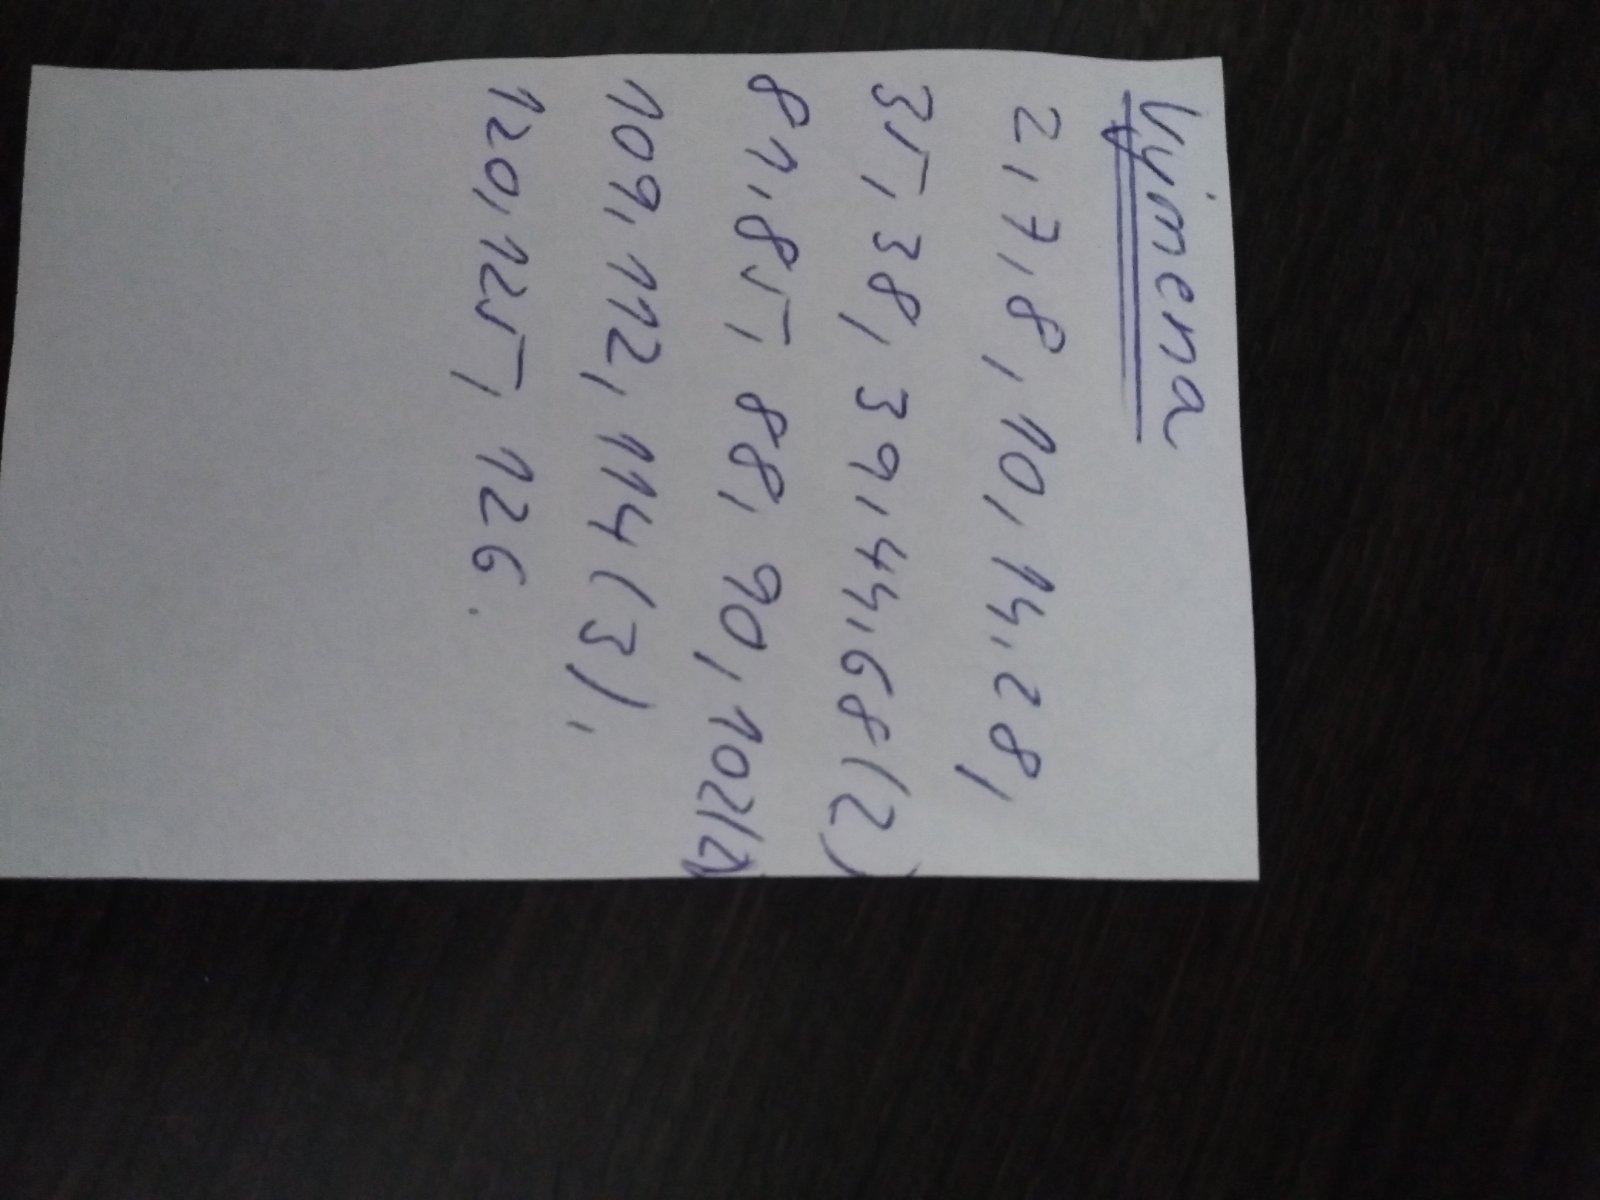 Vyimena
2, 7, 8, 10, 14, 28,
35, 38, 39, 44, 68 (2)
81, 85, 88, 90, 102(2)
109, 112, 114 (3),
120, 125, 126.